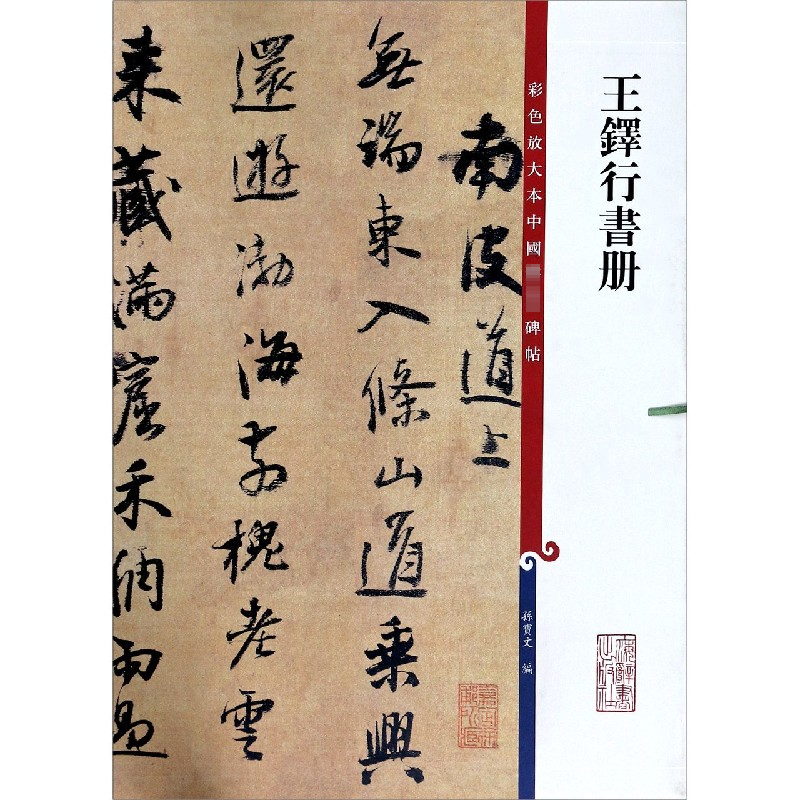 王鐸行書册
彩色放大本中國
碑帖
孫寶文 編
上海辭書出版社
南皮道上
無端東入條山道乗興
還遊渤海
槐老雲
来藏滿
禾
雨過